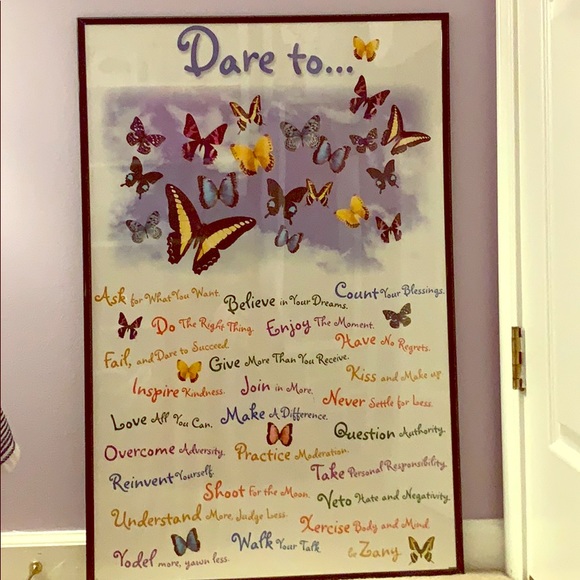 Dare to...
Ask for What You Want.
Believe in Your Dreams.
Count Your Blessings.
Do The Right Thing.
Enjoy The Moment.
Fail, and Dare to Succeed
Give More Than You Receive.
Have No Regrets.
Inspire Kindness.
Join in More.
Kiss and Make up
Love All You Can.
Make A Difference.
Never Settle for Less.
Overcome Adversity.
Practice Moderation.
Question Authority.
Reinvent Yourself.
Shoot For the Moon.
Take Personal Responsibility
Understand More, Judge Less.
Veto Hate and Negativity.
Walk Your Talk
Xercise Body and Mind
Yodel more, yawn less.
be Zany